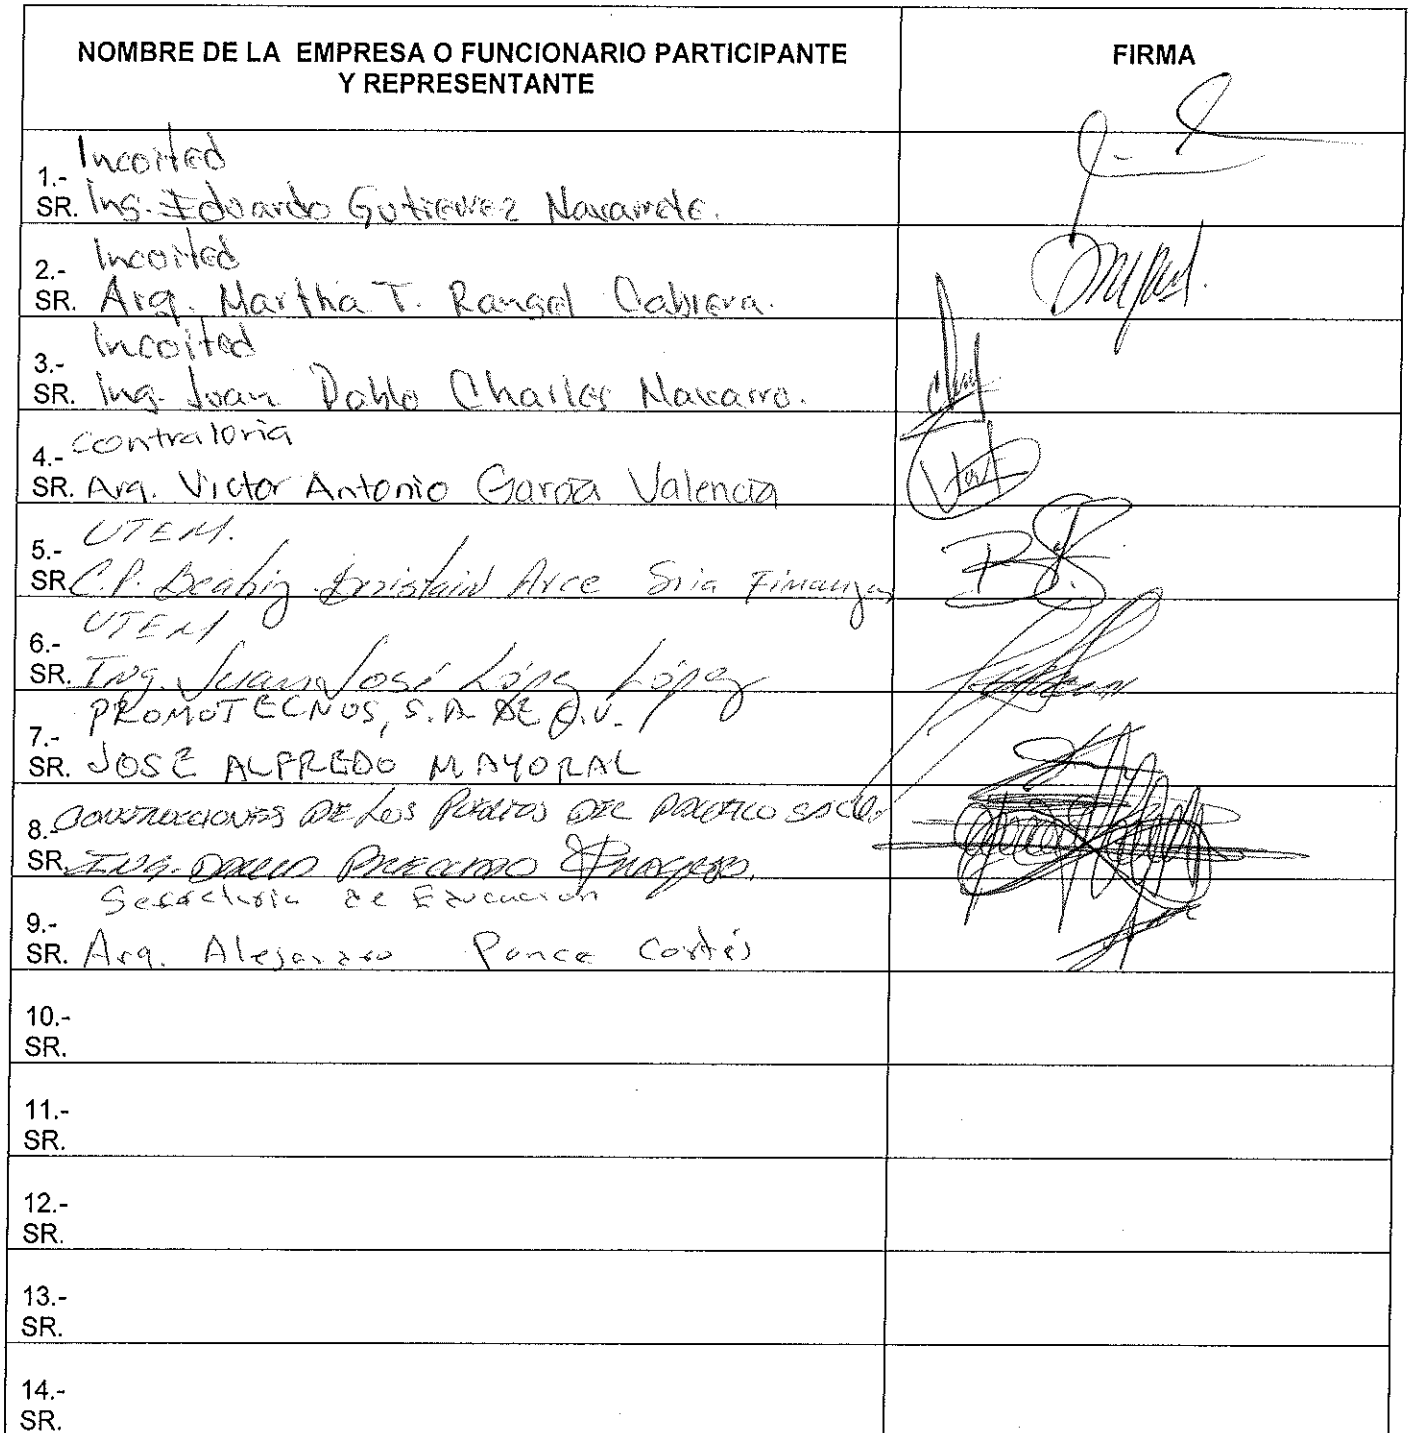 NOMBRE DE LA EMPRESA O FUNCIONARIO PARTICIPANTE
Y REPRESENTANTE
FIRMA
Incoifed
1.-
SR. Ing. Eduardo Gutierrez Navarrete.
Incoifed
2.-
SR. Arq. Martha T. Rangel Cabrera.
Incoifed
3.-
SR. Ing. Juan Pablo Charles Navarro.
Contraloria
4.-
SR. Arq. Victor Antonio Garcia Valencia
UTEM.
5.-
SR. C.P. Beatriz Arce Sria Finanzas
UTEM
6.-
SR. Ing. Juan José López López
PROMOTECNOS, S.A. DE C.V.
7.-
SR. JOSE ALFREDO MAYORAL
CONSTRUCCIONES DE LOS PUERTOS DEL PACIFICO
8.-
SR. ING. PRECIADO
Secretaria de Educacion
9.-
SR. Arq. Alejandro Ponce Cortés
10.-
SR.
11.-
SR.
12.-
SR.
13.-
SR.
14.-
SR.